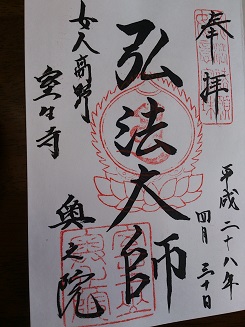 奉拝
平成二十八年
四月三十日
弘法大師
奥之院
女人高野
室生寺